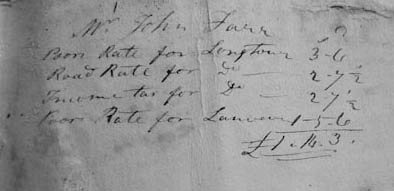 Mr John Farr
Poor Rate for Longtown 3-6
Road Rate for Do — 2-7½
Income tax for Do — 2-7½
Poor Rate for 1-5-6
£1.14.3.